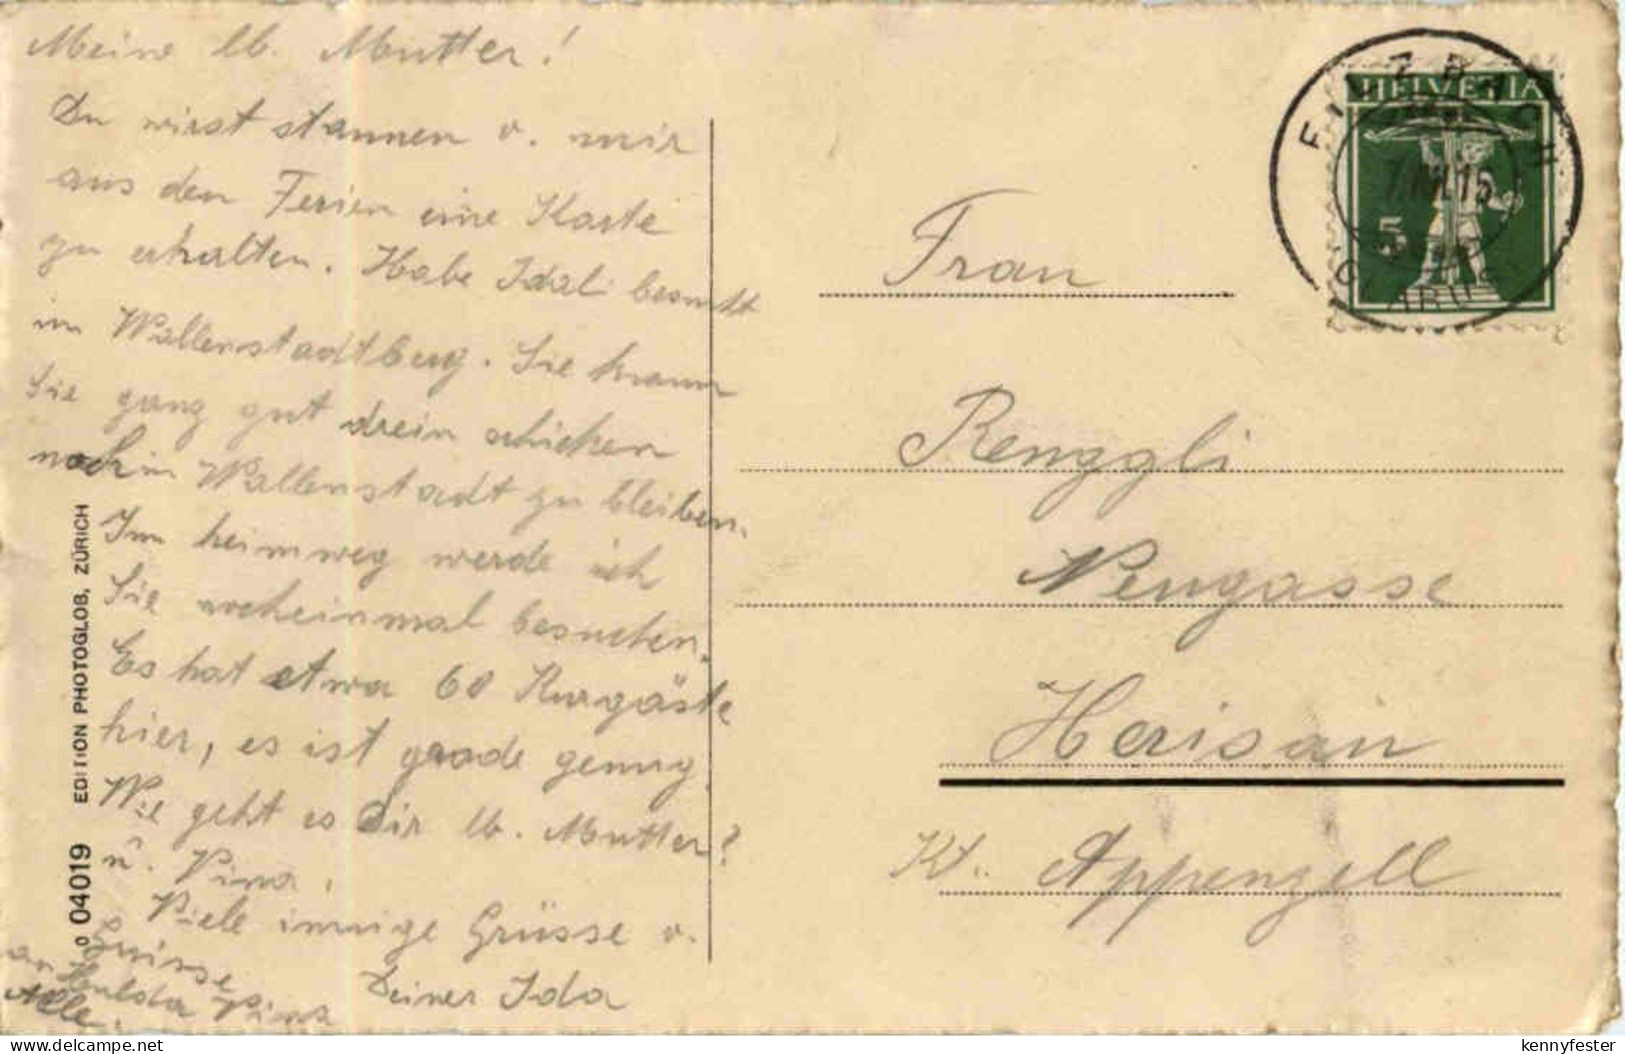 Meine lb. Mutter!
Du wirst staunen v. mir
aus den Ferien eine Karte
zu erhalten. Habe Idali besucht
im Wallenstadtberg. Sie kann
Sie ganz gut drein schicken
noch in Wallenstadt zu bleiben.
Im heimweg werde ich
Sie nocheinmal besuchen.
Es hat etwa 60 Kurgäste
hier, es ist grade genug
Wie geht es Dir lb. Mutter?
u. Pina.
Viele innige Grüsse v.
Deiner Ida
Grüsse
an Hulda Pina
Alle.
EDITION PHOTOGLOB, ZÜRICH
04019
HELVETIA
5
15
Frau
Renggli
Neugasse
Herisau
Kt. Appenzell
delcampe.net
kennyfester